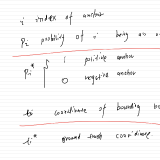 i index of anchor
Pi probability of i being an o
Pi* { 1 positive anchor
0 negative anchor
ti coordinate of bounding b
ti* ground truth coordinate